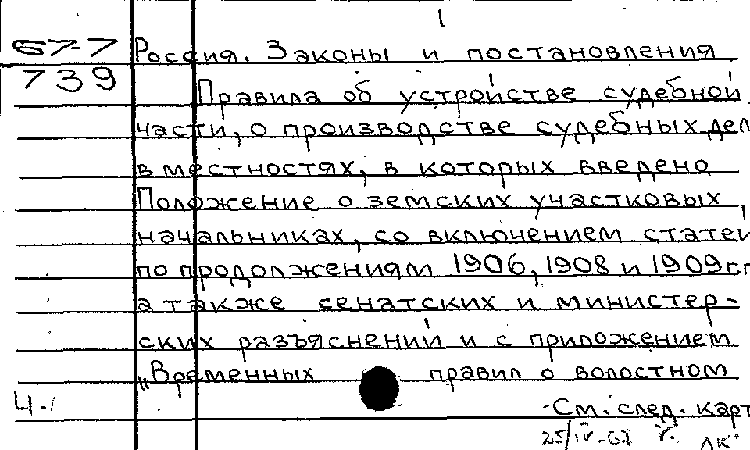 1
57-7 Россия. Законы и постановления
739
Правила об устройстве судебной
части, о производстве судебных дел
в местностях, в которых введено
Положение о земских участковых
начальниках, со включением статей
по продолжениям 1906, 1908 и 1909 г.г.
а также сенатских и министер-
ских разъяснений и с приложением
„Временных правил о волостном
Ч.1
См. след. карт
25/IV-67 г.